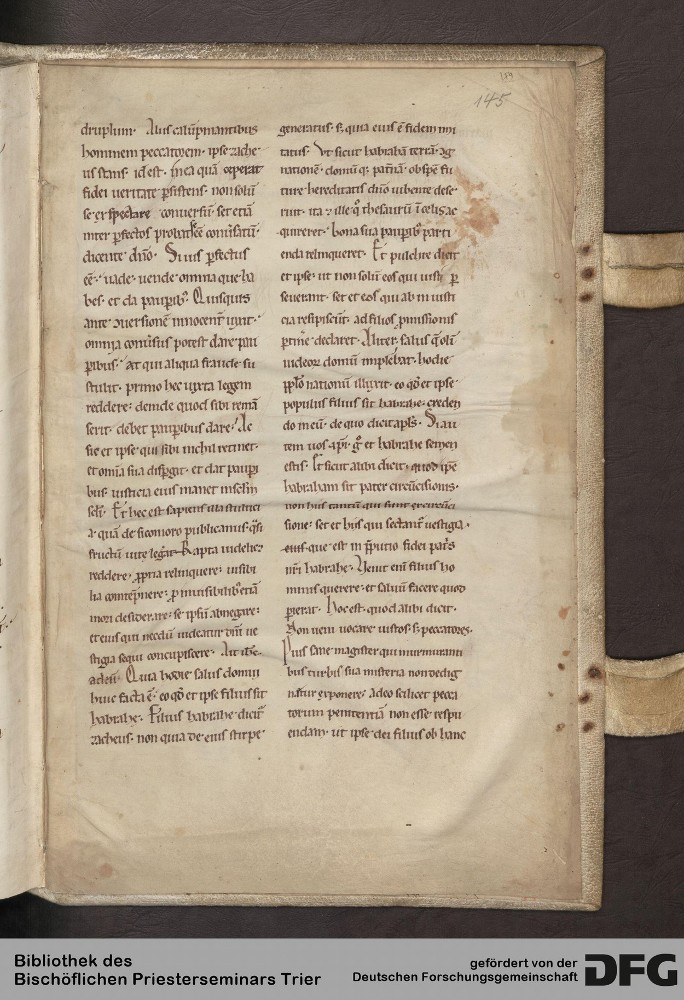 159
145
druplum. Aliis calūpniantibus
hominem peccatorem. ipse zache
us stans. id est. in ea quā ceperat
fidei ueritate ꝑsistens. non solū
se ex peccatore conuersū. set etiā
inter ꝑfectos probat esse conuersatū.
dicente dn̄o. Si uis ꝑfectus
eē. uade. uende omnia que ha
bes. et da pauꝑibꝰ. Quisquis
ante ɔuersionē innocent̄ uixit.
omnia conuersus potest dare pau
ꝑibus. At qui aliqua fraude su
stulit. primo hec iuxta legem
reddere. deinde quod sibi remā
serit. debet pauꝑibus dare. Ac
sic et ipse qui sibi nichil retinet.
et om̄ia sua disꝑgit. et dat pauꝑi
bus. iusticia eius manet in sc̄lm
sc̄li. Et hec est sapiens illa stultici
a. quā de sicomoro publicanus. qͣsi
fructū uite legat. Rapta uidelicet
reddere. ꝓpria relinquere. inuisi
lia contēpnere. ꝓ inuisibilibꝰ etiā
mori desiderare. se ipsū abnegare.
et eius qui necdū uideatur dn̄i ue
stigia sequi concupiscere. Ait ih̄c
ad eū. Quia hodie salus domui
huic facta ē. eo qd̓ et ipse filius sit
habrahe. Filius habrahe dicit̄
zacheus. non quia de eius stirpe
generatus. s; quia eius ē fidem imi
tatus. Vt sicut habrahā terrā ɔg
nationē. domū q; pat̄nā. ob spē fu
ture hereditatis dn̄o iubente dese
ruit. ita ⁊ ille qͦ thesaurū ī celis ac
quireret. bona sua pauꝑibꝰ parti
enda relinqueret. Et pulchre dicit
et ipse. ut non solū eos qui iusti ꝑ
seuerant. set et eos qui ab iniusti
cia resipiscūt. ad filios ꝓmissionis
ꝑtin̄e declaret. Aliter. salus que olī
iudeoꝝ domū implebat. hodie
pp̄lo nationū illuxit. eo qd̓ et ipse
populus filius sit habrahe. creden
do in eū. de quo dicit apl̄s. Si au
tem uos xp̄i. gͦ et habrahe semen
estis. Et sicut alibi dicit. quod ipse
habraham sit pater circūcisionis.
non hiis tantū qui sunt ex circūci
sione. set et hiis qui sectant̄ uestigia.
eius que est in p̄putio fidei patris
nr̄i habrahe. Venit eni filius ho
minis querere. et saluū facere quod
ꝑierat. Hoc est. quod alibi dicit.
Non ueni uocare iustos. s; peccatores.
Pius sane magister qui murmuranti
bus turbis sua misteria non dedig
natur exponere. adeo scilicet pecca
torum penitentiā non esse respu
endam. ut ipse dei filius ob hanc
Bibliothek des
Bischöflichen Priesterseminars Trier
gefördert von der
Deutschen Forschungsgemeinschaft
DFG